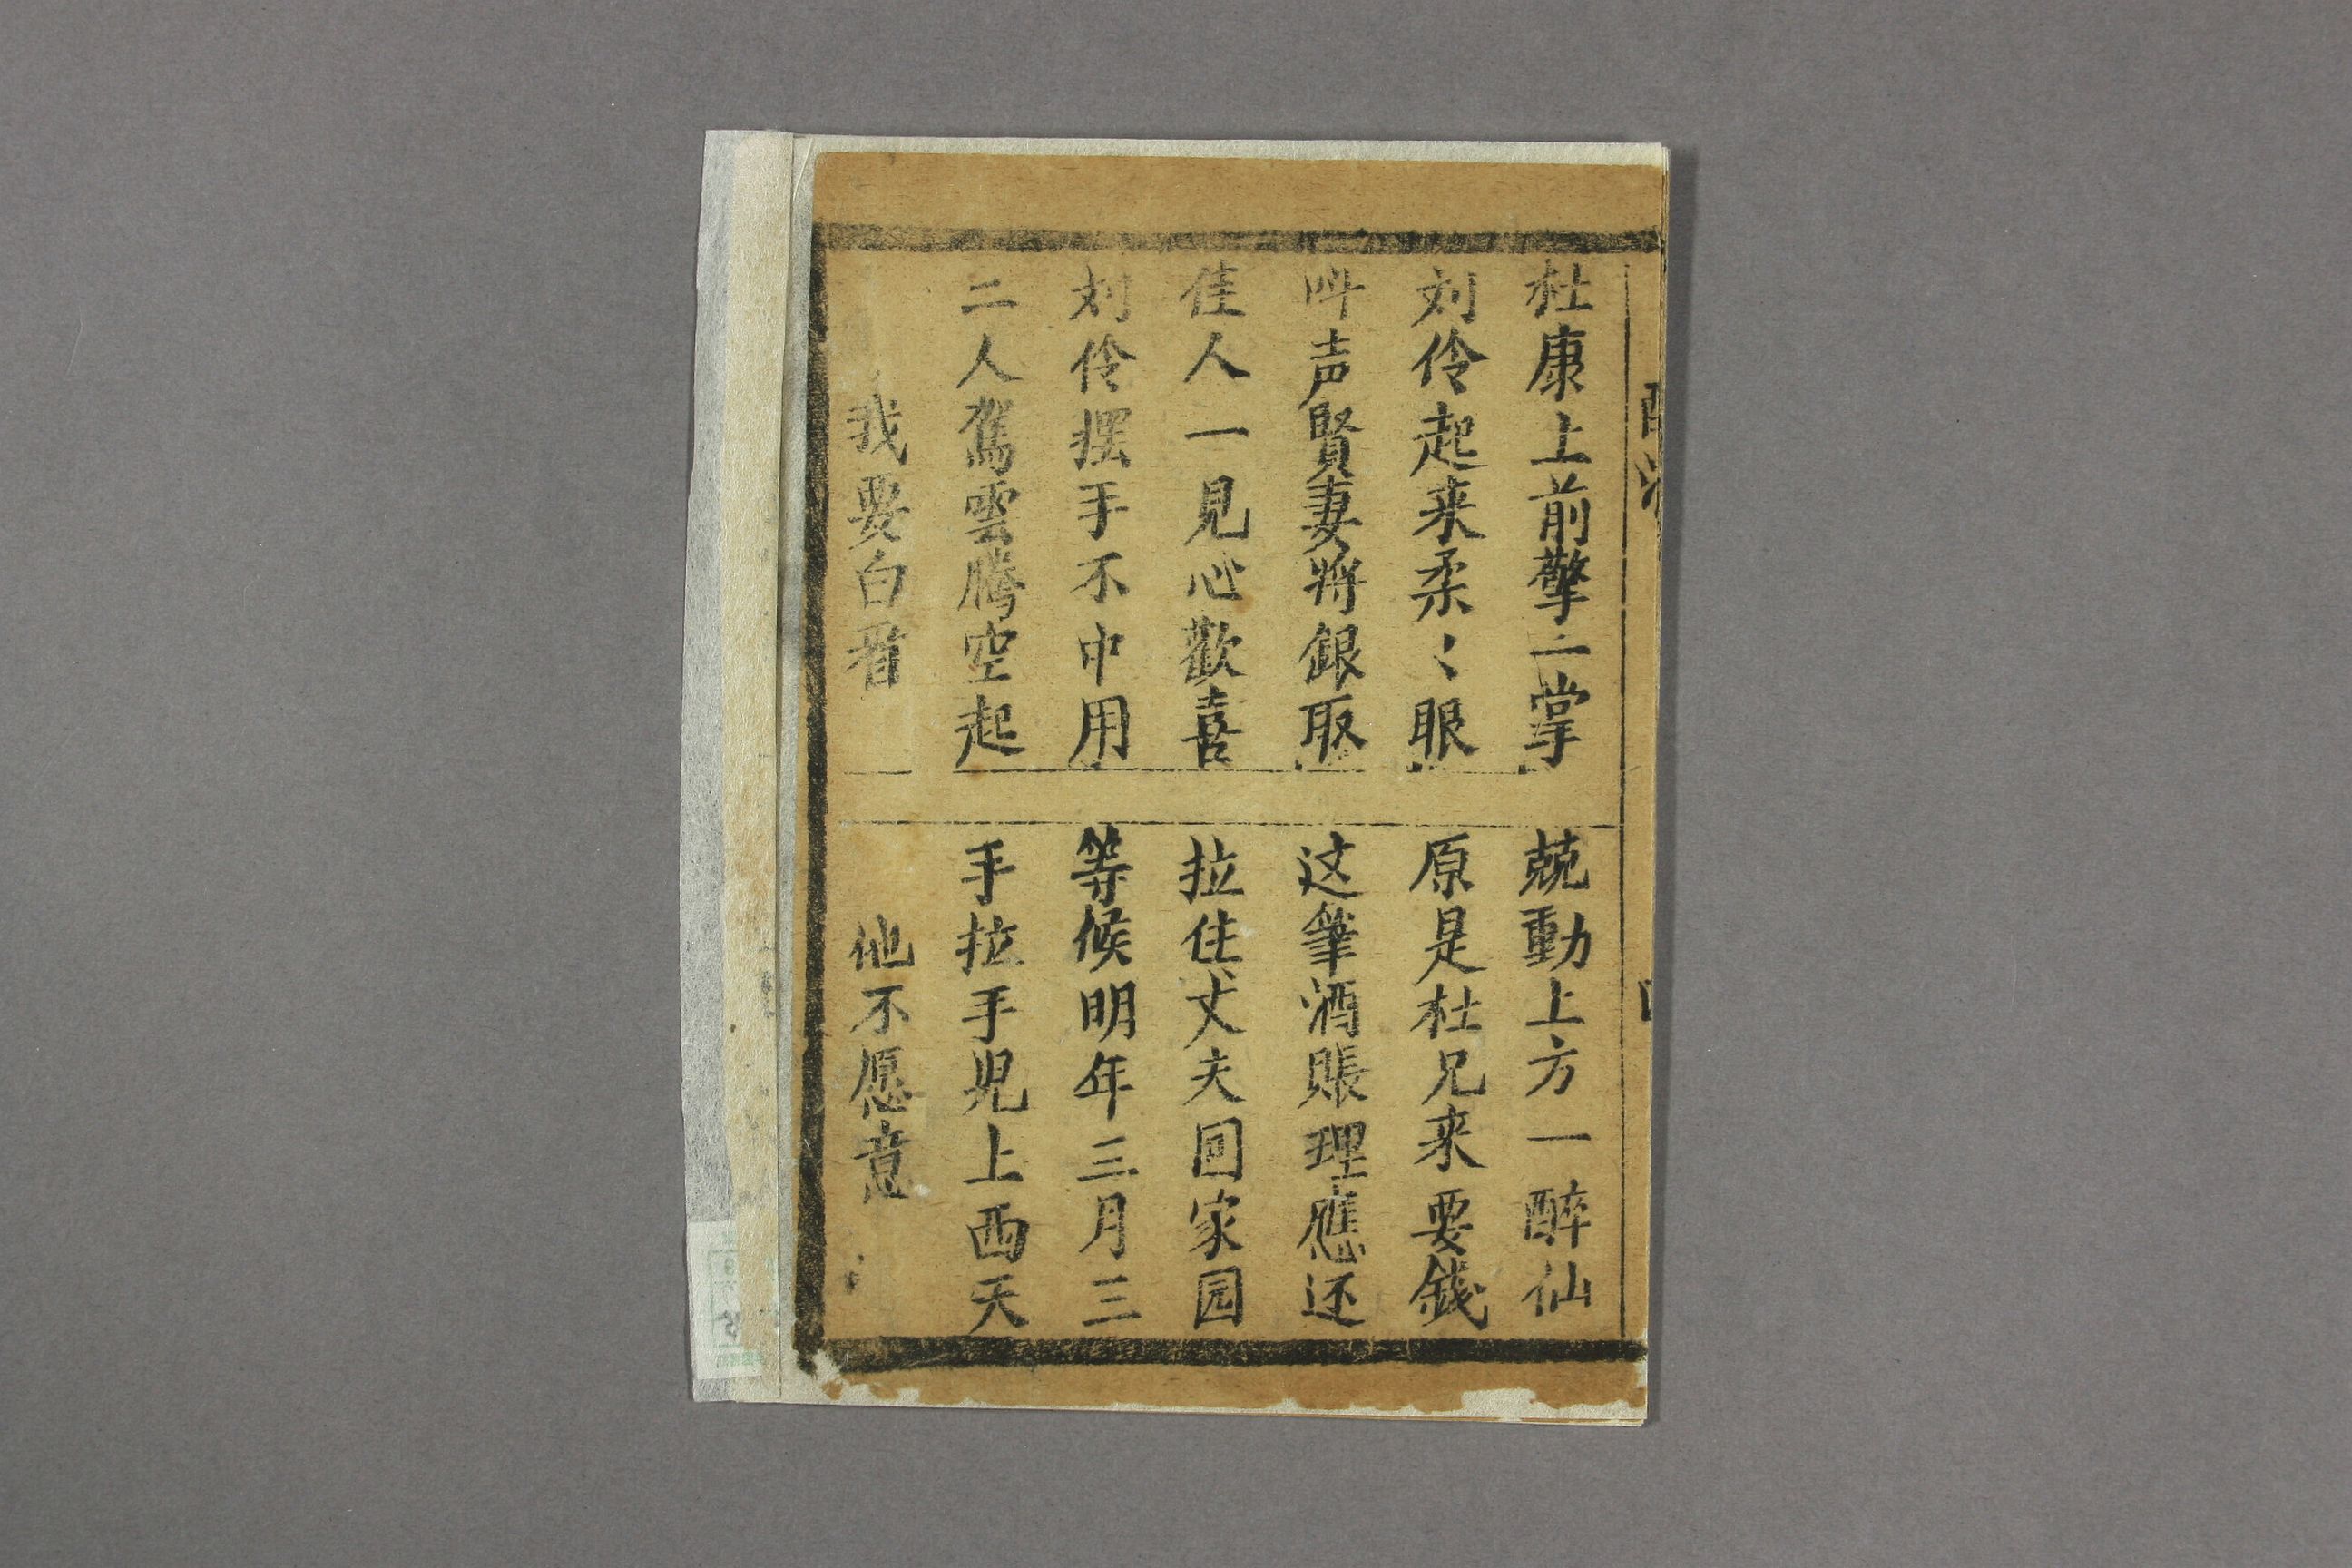 杜康上前擎二掌
兢動上方一醉仙
刘伶起来柔〻眼
原是杜兄来要錢
呌声賢妻將銀取
这筆酒賬理應还
佳人一見心歡喜
拉住丈夫囬家园
刘伶摆手不中用
等候明年三月三
二人駕雲騰空起
手拉手児上西天
我要白
他不愿意